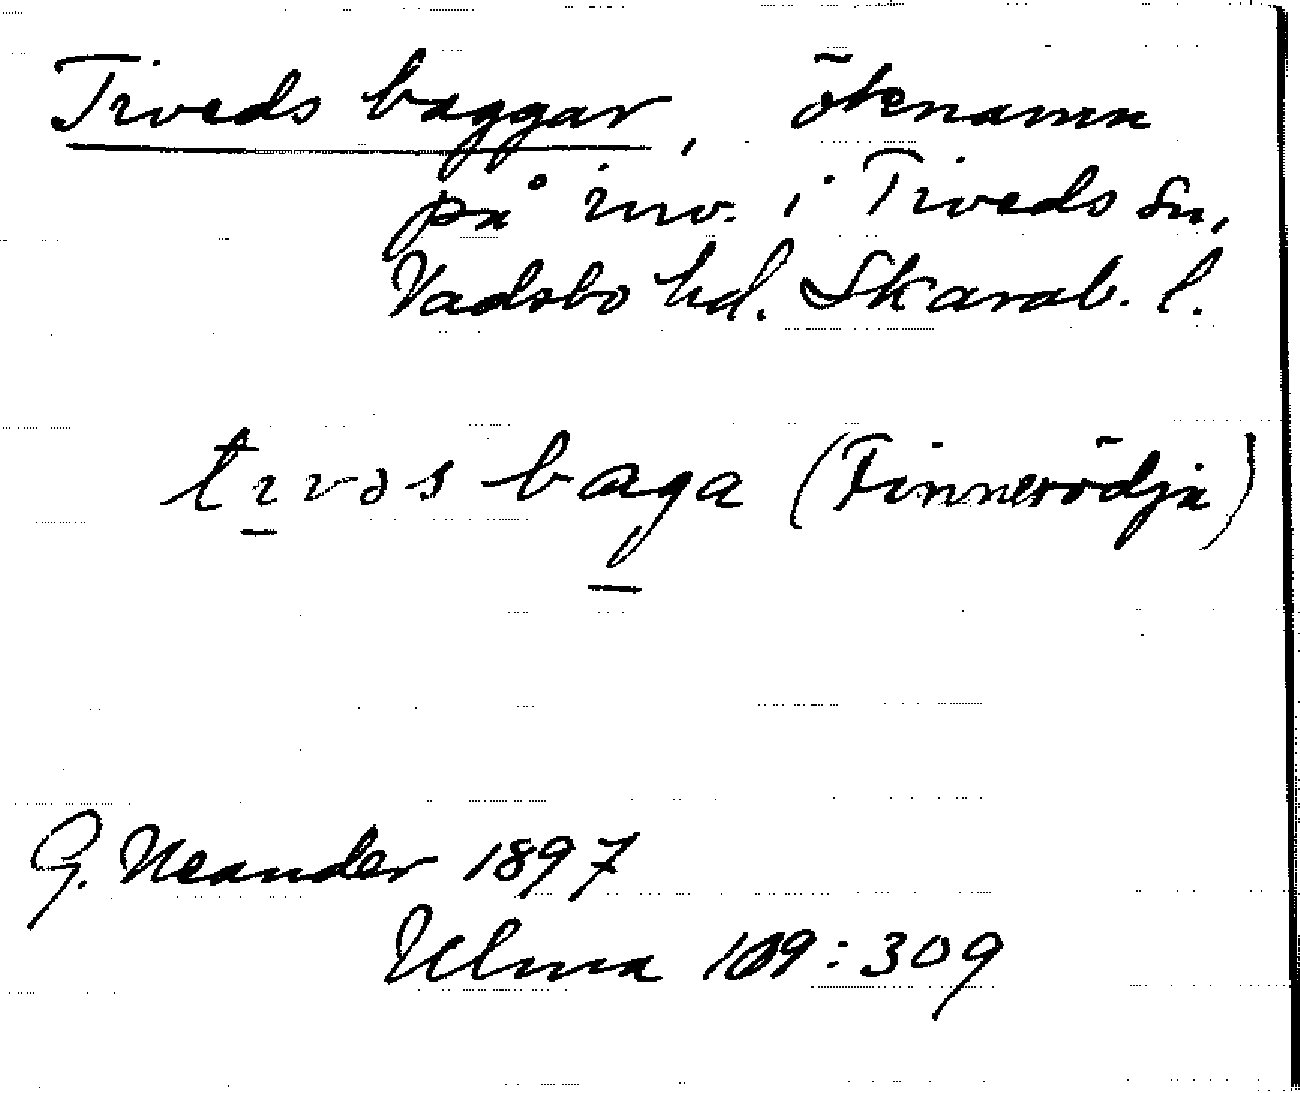 Tiveds baggar, öknamn
på inv. i Tiveds sn,
Vadsbo hd. Skarab. l.
tivəs baga (Finnerödja)
G. Neander 1897
Ulma 109:309